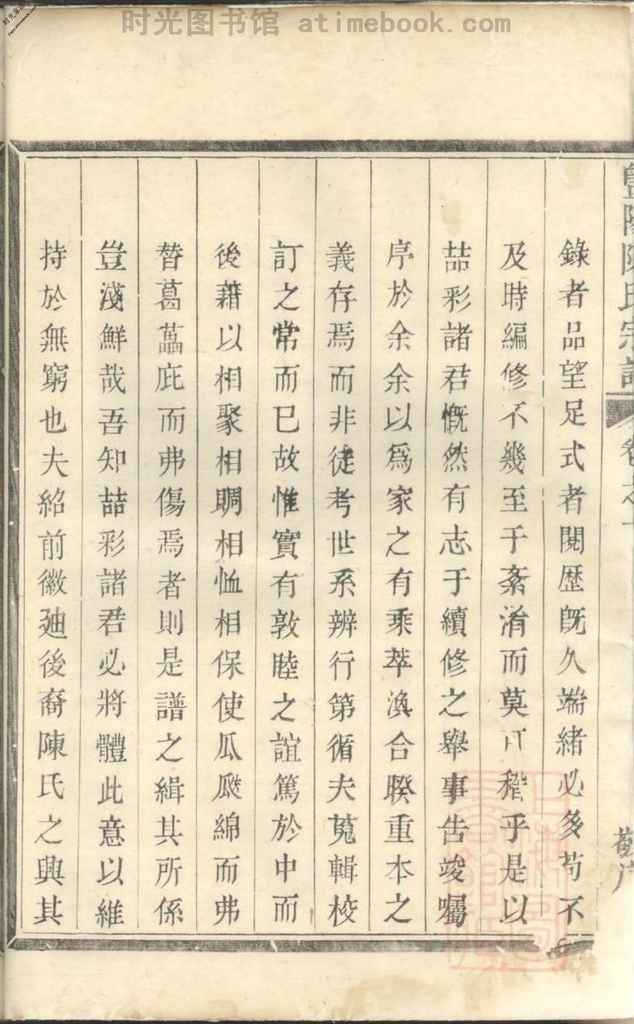 时光图书馆 atimebook.com
暨陽陳氏宗譜
卷之一
錄者品望足式者閱歷既久端緒必多苟不
及時編修不幾至于紊淆而莫可稽乎是以
喆彩諸君慨然有志于續修之舉事告竣囑
序於余余以爲家之有乘萃渙合睽重本之
義存焉而非徒考世系辨行第循夫蒐輯校
訂之常而已故惟實有敦睦之誼篤於中而
後藉以相聚相賙相恤相保使瓜瓞綿而弗
替葛藟庇而弗傷焉者則是譜之緝其所係
豈淺鮮哉吾知喆彩諸君必將體此意以維
持於無窮也夫紹前徽廸後裔陳氏之興其